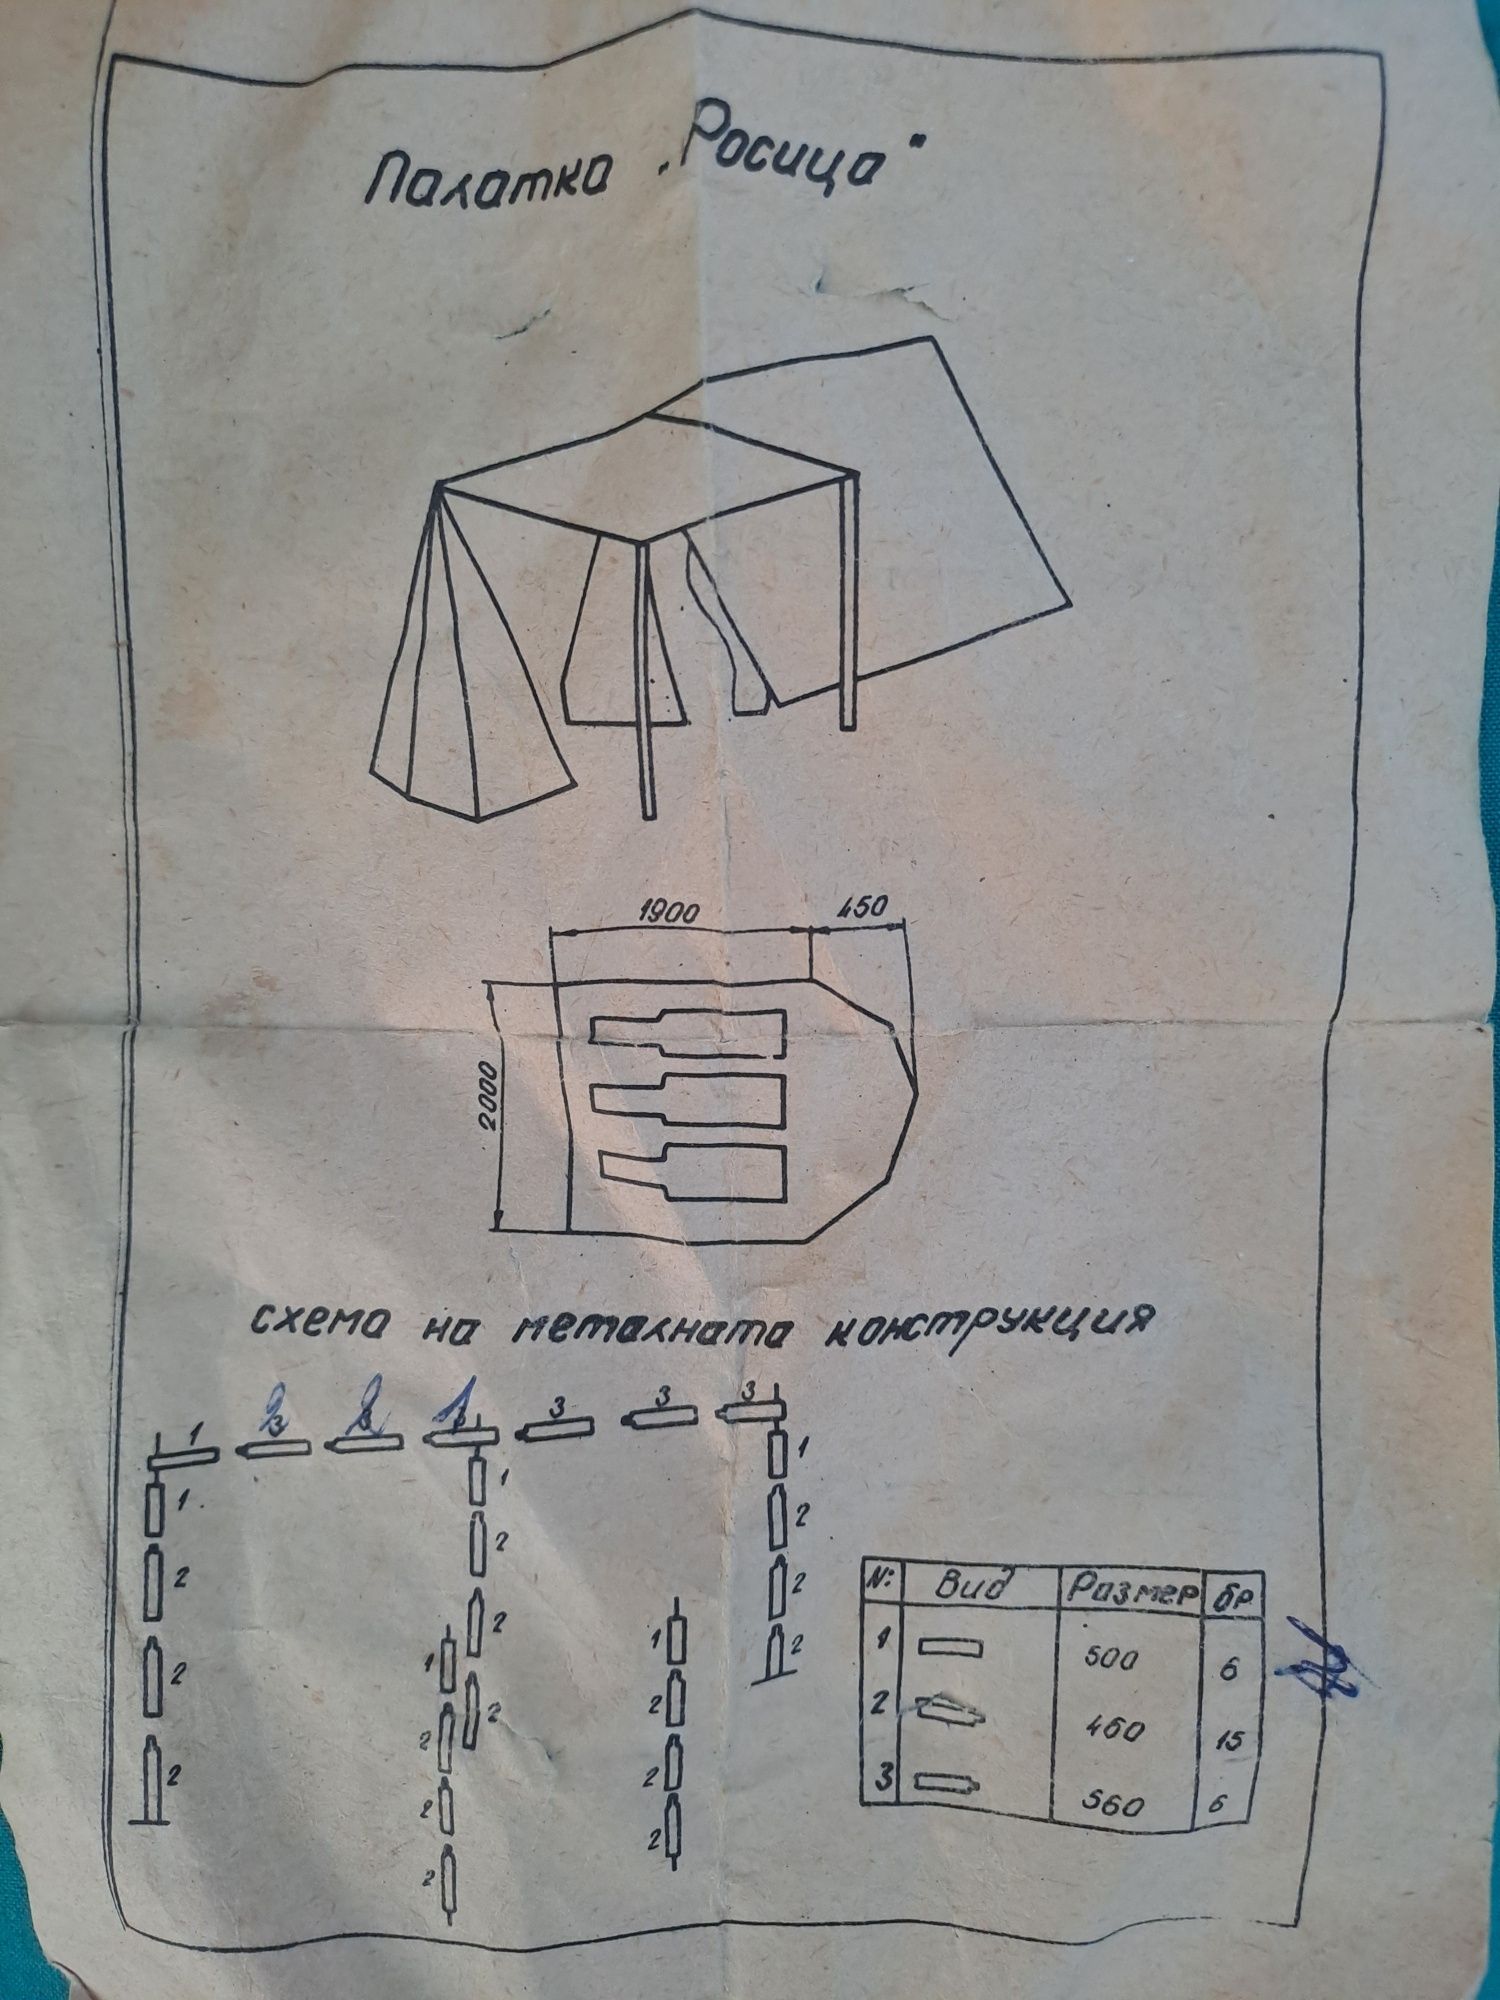 Палатка „Росица"
1900
450
2000
схема на металната конструкция
1 3 3 3 3 3 3
2 2 1
1 1 1
2 2 2
2 2 2
2 2 2
1 1
2 2
2 2
2 2
№: Вид Размер бр.
1 500 6
2 460 15
3 560 6